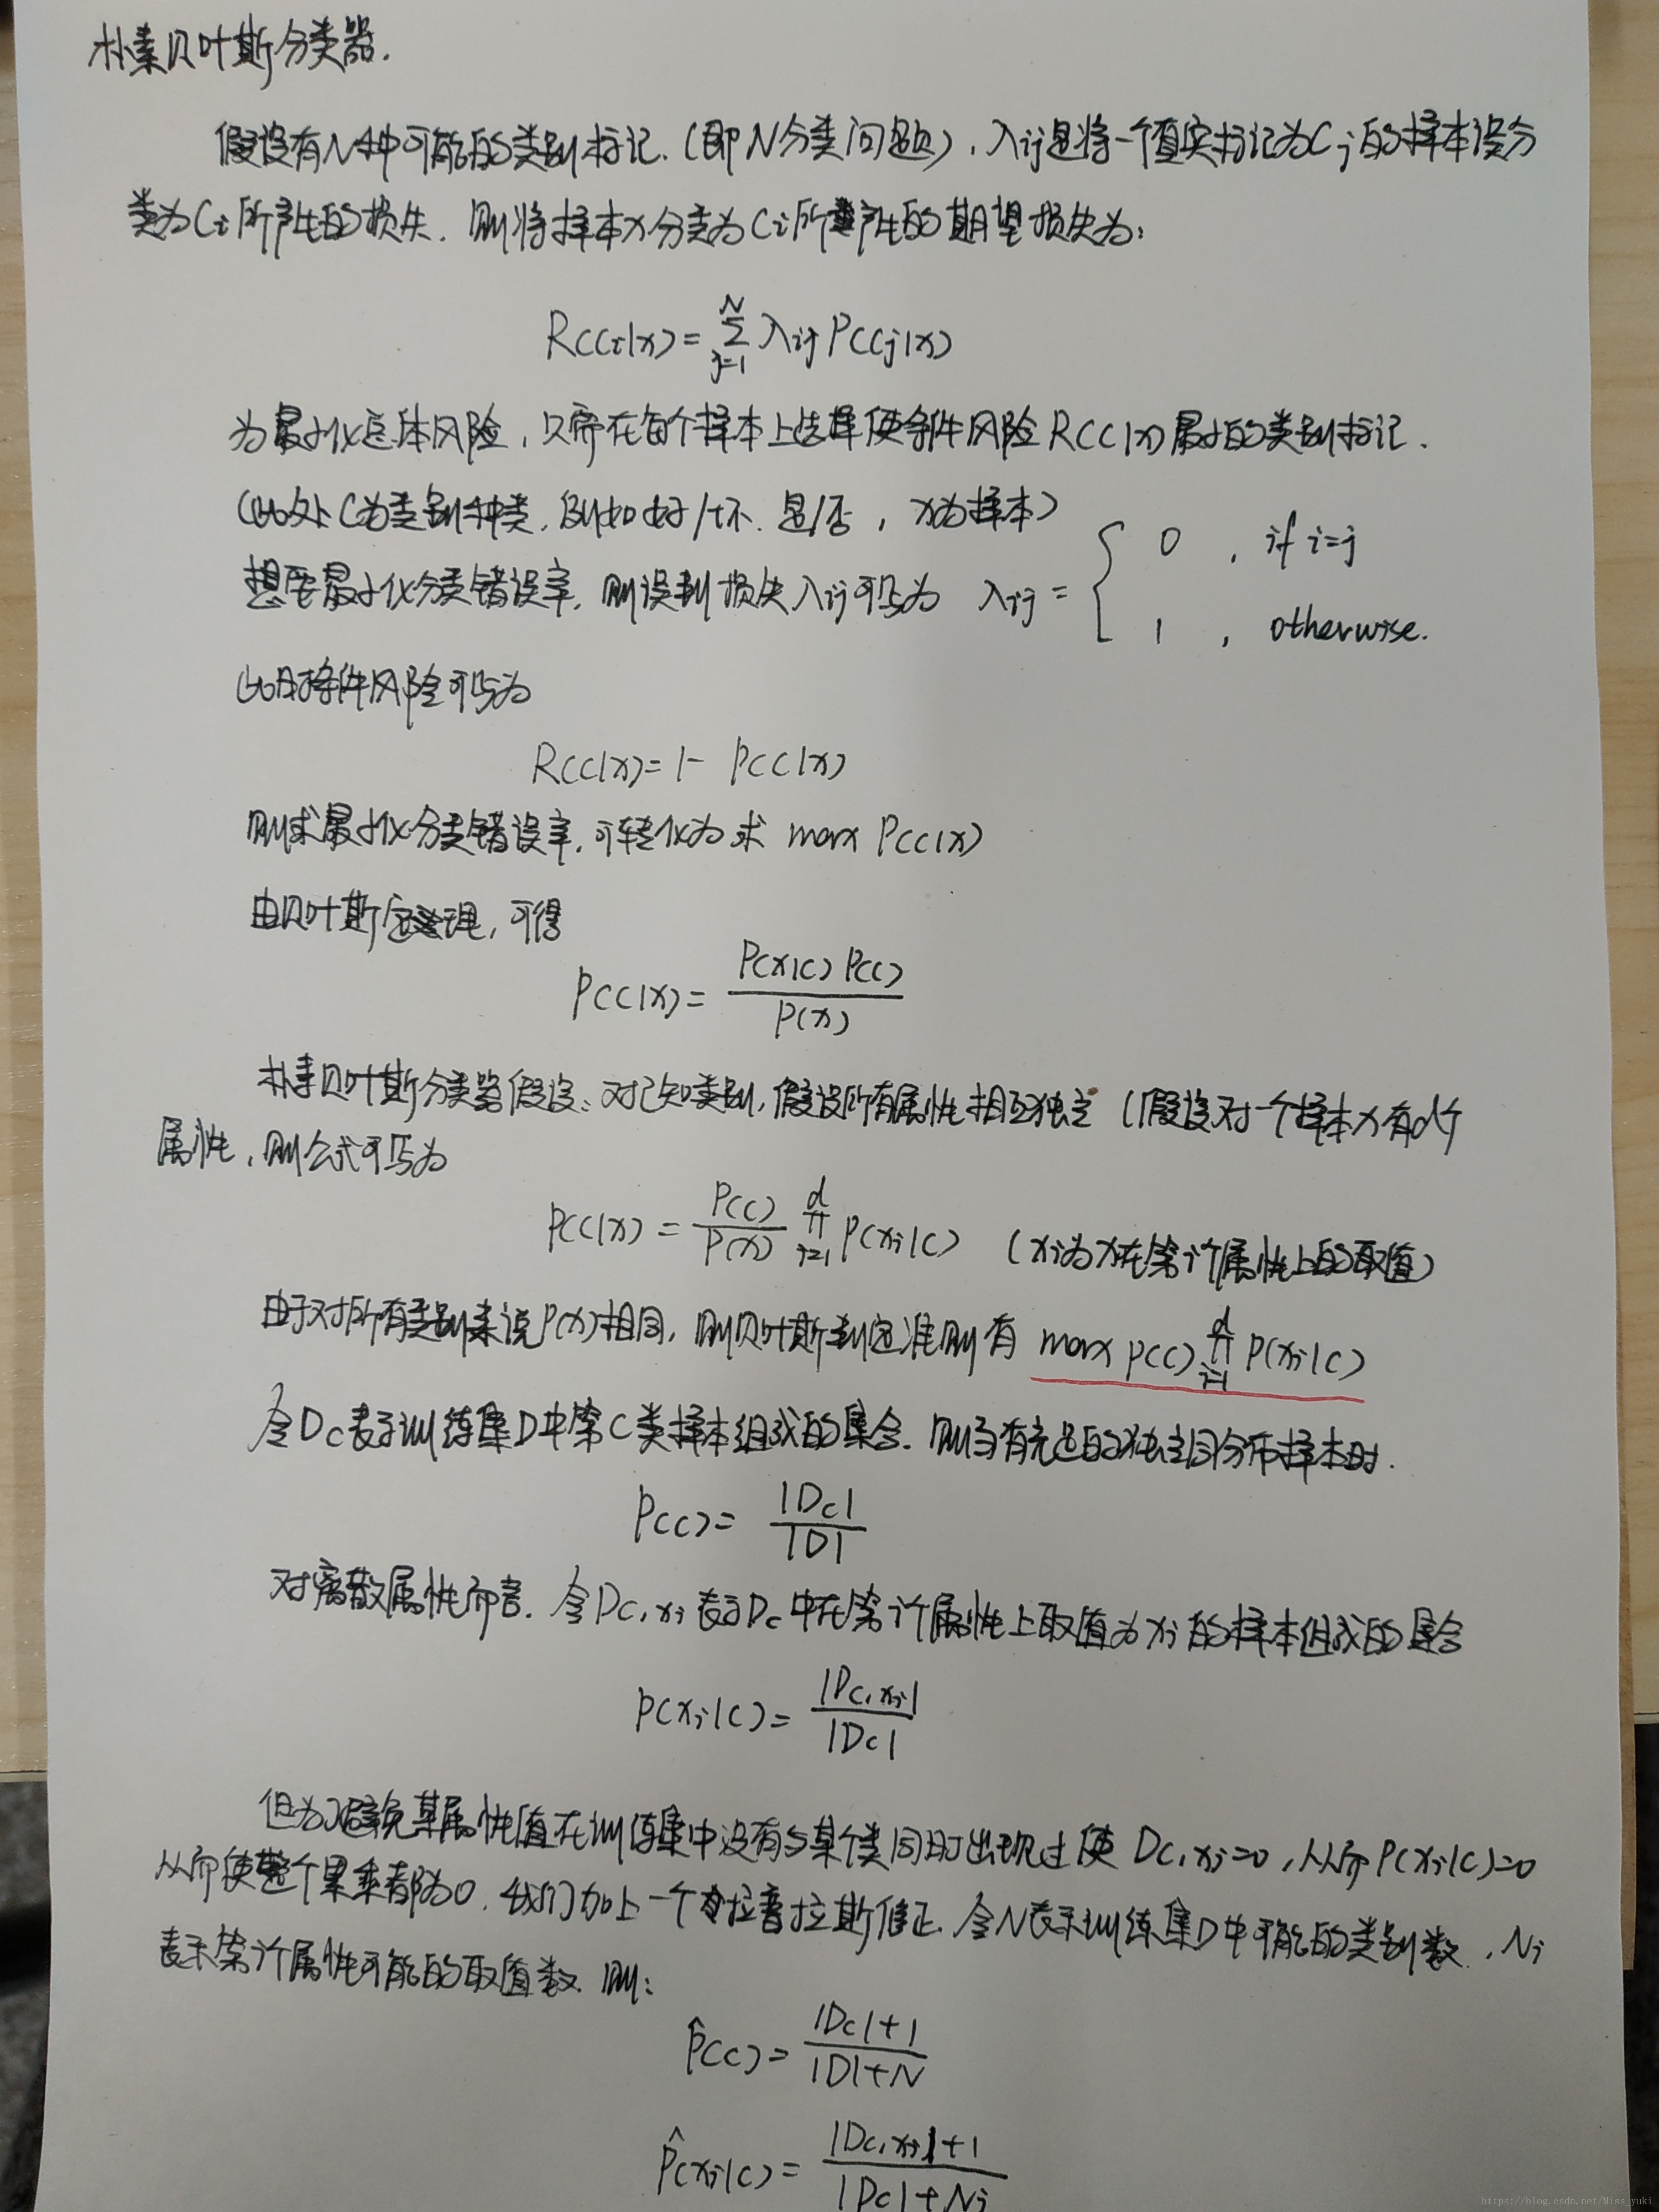 朴素贝叶斯分类器.
假设有N种可能的类别标记.(即N分类问题), λij是将一个真实标记为Cj的样本误分
类为Ci所产生的损失. 则将样本x分类为Ci所产生的期望损失为:
R(Ci|x) = Σ_{j=1}^{N} λij P(Cj|x)
为最小化总体风险, 只需在每个样本上选择使条件风险R(C|x)最小的类别标记.
(此处C为类别种类, 例如好/坏. 是/否, x为样本)
想要最小化分类错误率, 则误判损失λij可写为 λij = { 0 , if i=j
1 , otherwise.
此时条件风险可写为
R(C|x) = 1 - P(C|x)
则求最小化分类错误率, 可转化为求 max P(C|x)
由贝叶斯定理, 可得
P(C|x) = P(x|C) P(C) / P(x)
朴素贝叶斯分类器假设: 对已知类别, 假设所有属性相互独立 (假设对一个样本x有d个
属性, 则公式可写为
P(C|x) = P(C)/P(x) ∏_{i=1}^{d} P(xi|C) (xi为x在第i个属性上的取值)
由于对所有类别来说P(x)相同, 则贝叶斯判定准则有 max P(C) ∏_{i=1}^{d} P(xi|C)
令Dc表示训练集D中第C类样本组成的集合. 则当有充足的独立同分布样本时.
P(C) = |Dc| / |D|
对离散属性而言. 令Dc,xi表示Dc中在第i个属性上取值为xi的样本组成的集合
P(xi|C) = |Dc,xi| / |Dc|
但为避免某属性值在训练集中没有与某个类同时出现过使 Dc,xi=0, 从而P(xi|C)=0
从而使整个累乘都为0. 我们加上一个拉普拉斯修正. 令N表示训练集D中可能的类别数, Ni
表示第i个属性可能的取值数. 则:
P̂(C) = |Dc|+1 / |D|+N
P̂(xi|C) = |Dc,xi|+1 / |Dc|+Ni
https://blog.csdn.net/Miss_yuki